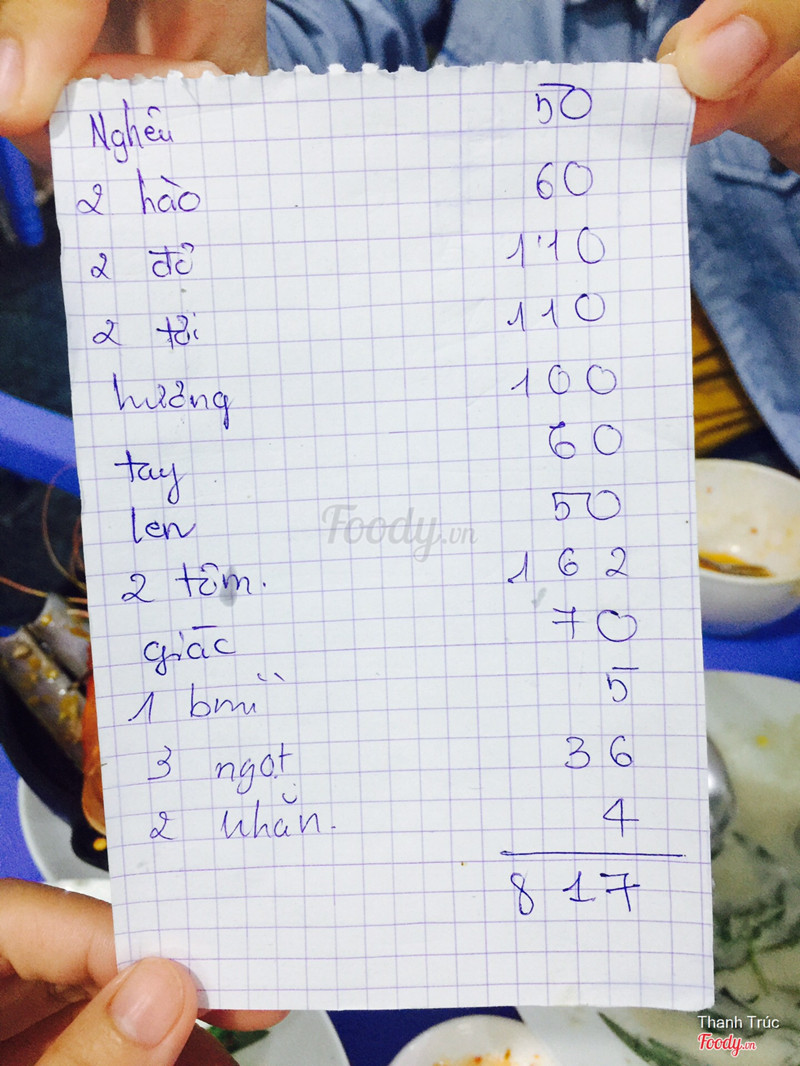 Nghêu 50
2 hào 60
2 đỏ 110
2 tỏi 110
hương 100
tay 60
len 50
2 tôm. 162
giác 70
1 bmì 5
3 ngọt 36
2 khăn. 4
817
Foody.vn
Thanh Trúc
Foody.vn